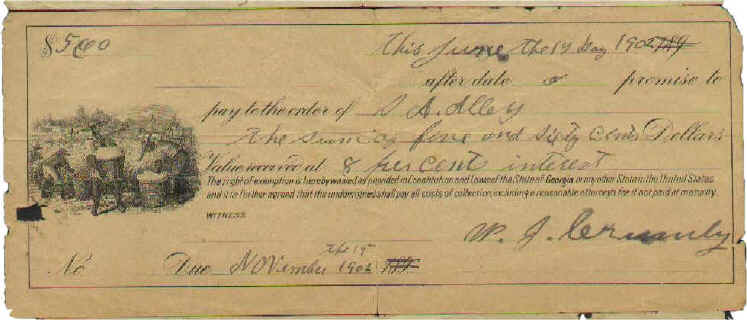 $5.60 This June the 19 Day 1902 189
after date I promise to
pay to the order of S A. Alley
the sum of five and sixty cents Dollars
Value received at 8 per cent interest
The right of exemption is hereby waived as provided in Constitution and Laws of the State of Georgia or any other State in the United States
and it is further agreed that the undersigned shall pay all costs of collection, including a reasonable attorney's fee if not paid at maturity.
WITNESS
W. J.
the 19
No Due November 1902 189